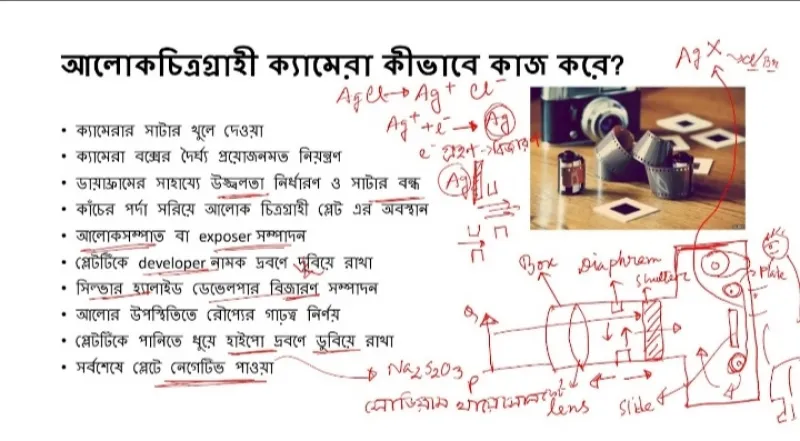 আলোকচিত্রগ্রাহী ক্যামেরা কীভাবে কাজ করে?
• ক্যামেরার সাটার খুলে দেওয়া
• ক্যামেরা বক্সের দৈর্ঘ্য প্রয়োজনমত নিয়ন্ত্রণ
• ডায়াফ্রামের সাহায্যে উজ্জ্বলতা নির্ধারণ ও সাটার বন্ধ
• কাঁচের পর্দা সরিয়ে আলোক চিত্রগ্রাহী প্লেট এর অবস্থান
• আলোকসম্পাত বা exposer সম্পাদন
• প্লেটটিকে developer নামক দ্রবণে ডুবিয়ে রাখা
• সিল্ভার হ্যালাইড ডেভেলপার বিজারণ সম্পাদন
• আলোর উপস্থিতিতে রৌপ্যের গাঢ়ত্ব নির্ণয়
• প্লেটটিকে পানিতে ধুয়ে হাইপো দ্রবণে ডুবিয়ে রাখা
• সর্বশেষে প্লেটে নেগেটিভ পাওয়া
AgCl → Ag⁺ Cl⁻
Ag⁺ + e⁻ → Ag
e⁻ গ্রহণ → বিজারণ
Ag
AgX → Cl/Br
Box
Diaphram
Shutter
Plate
Q
P
Na2S2O3
lens
Slide